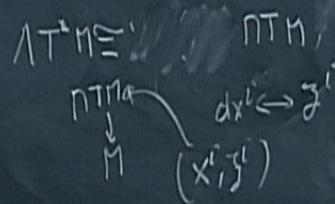 ΛT*M ≅
ΠTM
ΠTM
dxⁱ ↔ ξⁱ
↓
M
(xⁱ, ξⁱ)